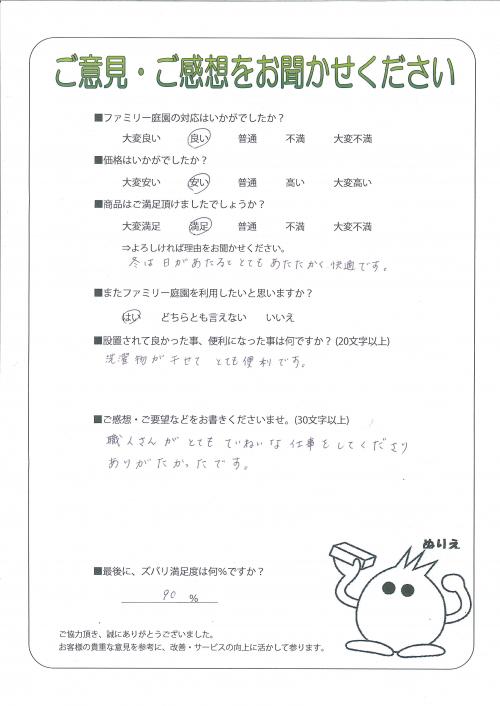 ご意見・ご感想をお聞かせください
■ファミリー庭園の対応はいかがでしたか？
大変良い 良い 普通 不満 大変不満
■価格はいかがでしたか？
大変安い 安い 普通 高い 大変高い
■商品はご満足頂けましたでしょうか？
大変満足 満足 普通 不満 大変不満
⇒よろしければ理由をお聞かせください。
冬は日があたるととてもあたたかく快適です。
■またファミリー庭園を利用したいと思いますか？
はい どちらとも言えない いいえ
■設置されて良かった事、便利になった事は何ですか？(20文字以上)
洗濯物が干せて とても便利です。
■ご感想・ご要望などをお書きくださいませ。(30文字以上)
職人さんが とても ていねいな 仕事を してくださり
ありがたかったです。
ぬりえ
■最後に、ズバリ満足度は何%ですか？
90 %
ご協力頂き、誠にありがとうございました。
お客様の貴重な意見を参考に、改善・サービスの向上に活かして参ります。